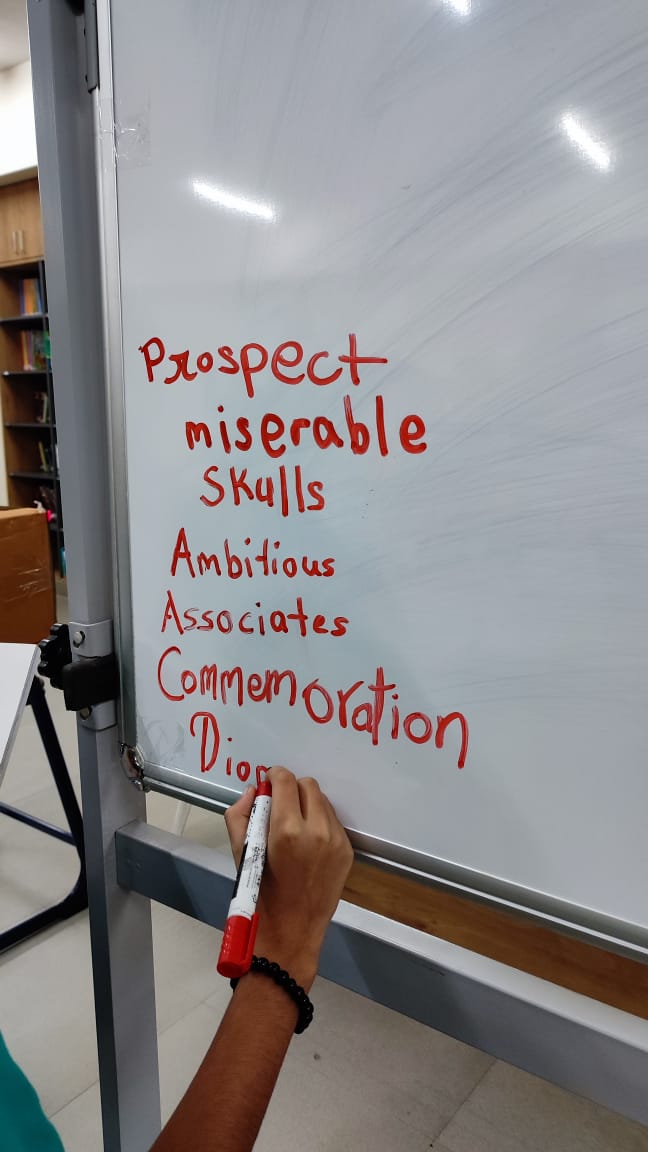 Prospect
miserable
Skulls
Ambitious
Associates
Commemoration